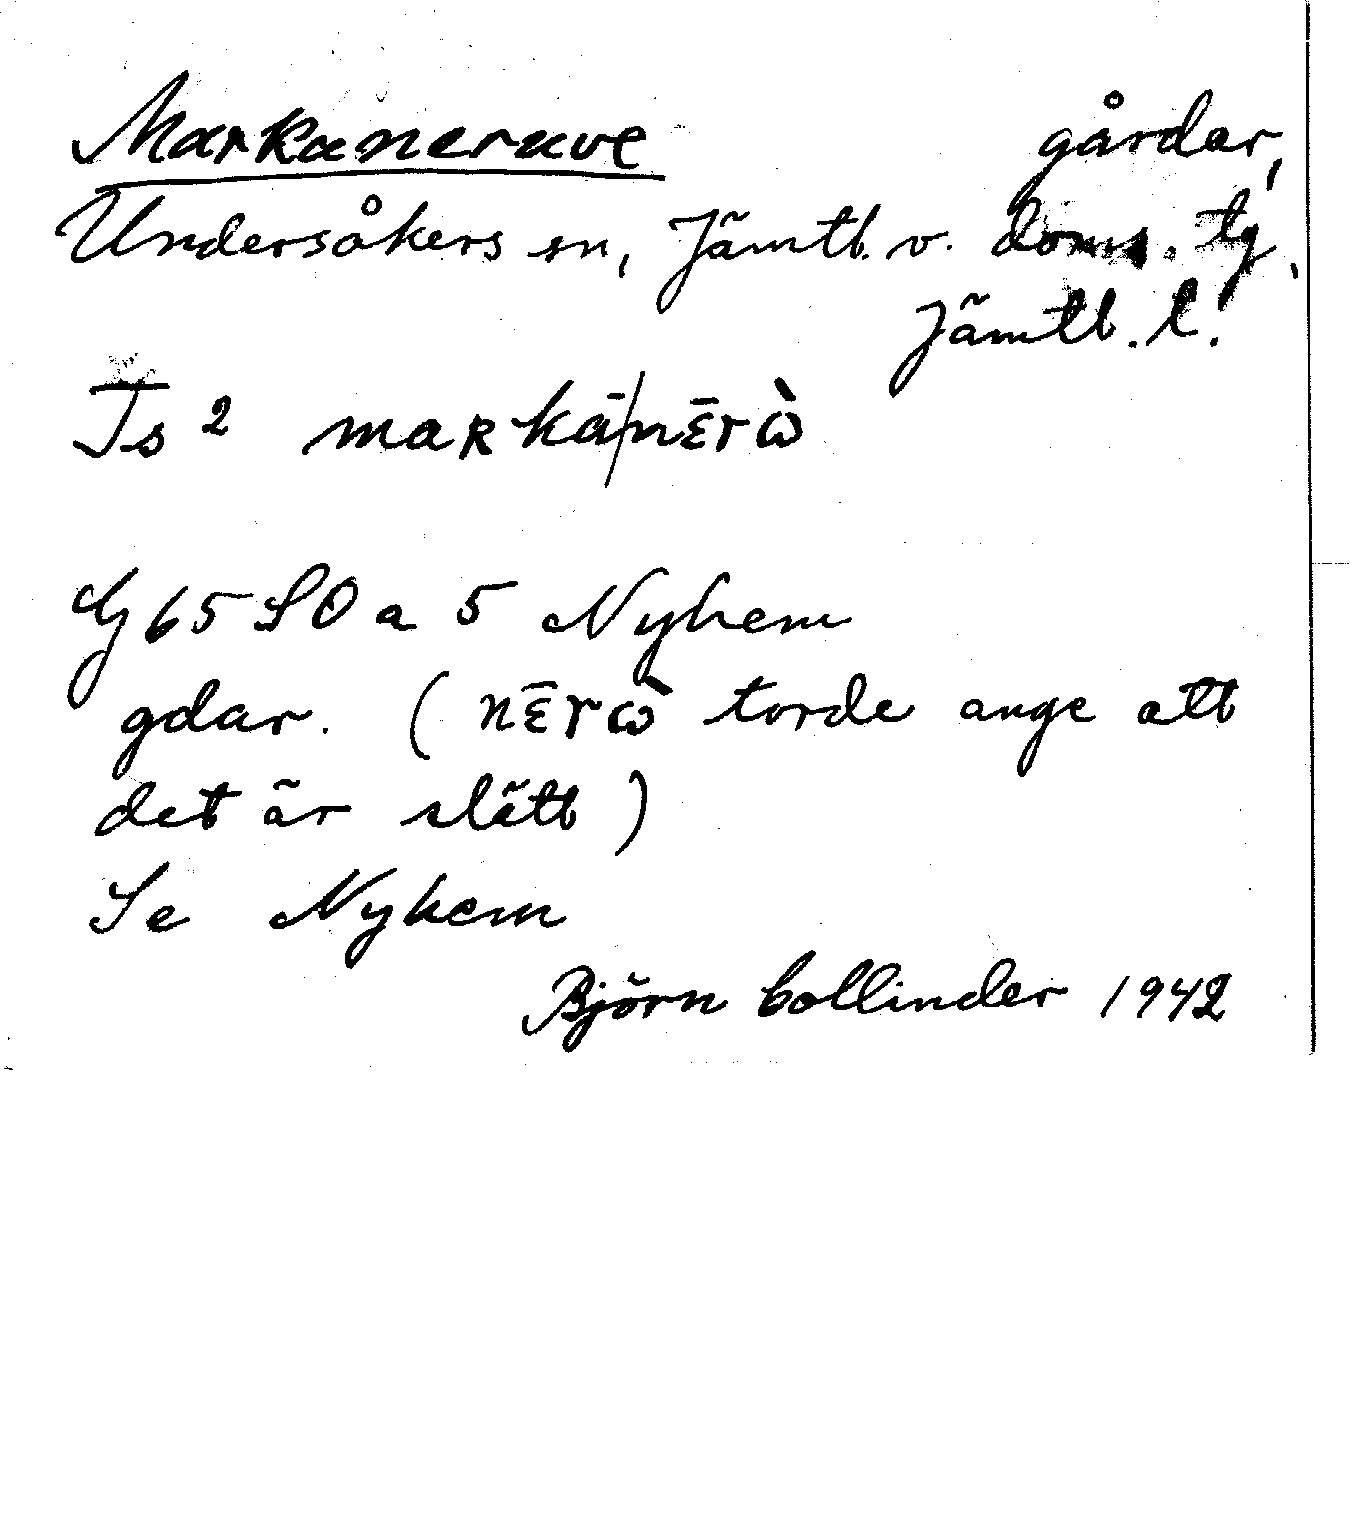 Markaneruve gårdar,
Undersåkers sn, Jämtl. v. doms. tg,
Jämtl. l.
Js 2 maʀkā/nɛ̄rὼ
G 65 SO a 5 Nyhem
gdar. (nɛ̄rὼ torde ange att
det är slätt)
Se Nyhem
Björn Collinder 1942